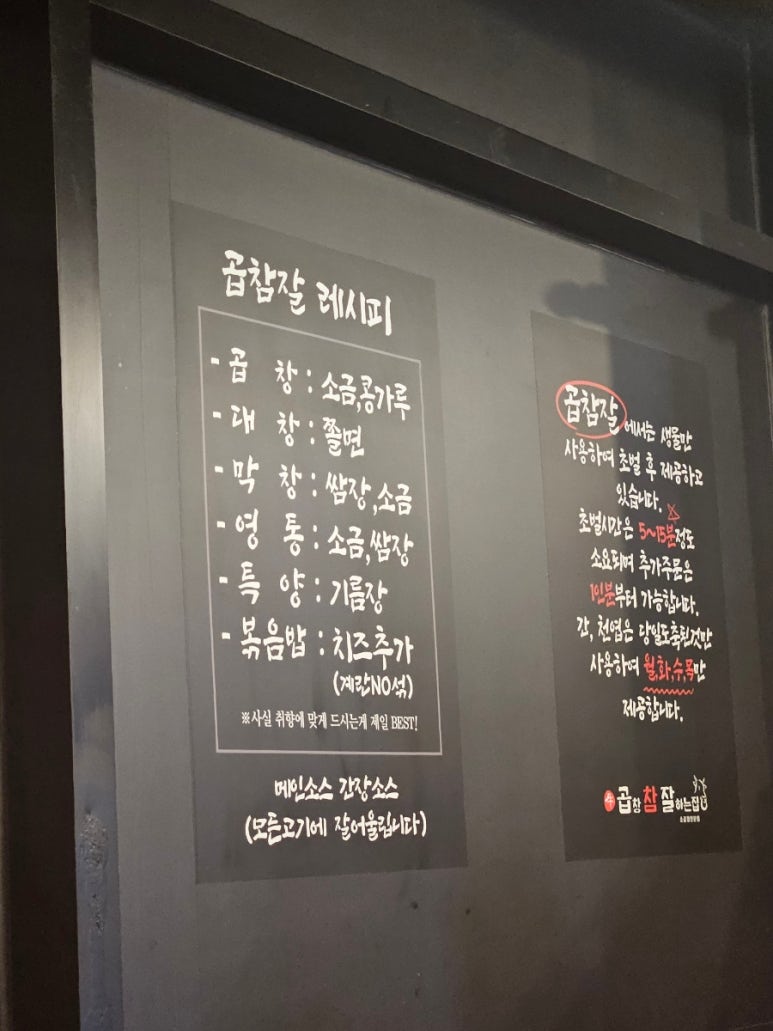 곱참잘 레시피
- 곱 창 : 소금,콩가루
- 대 창 : 쫄면
- 막 창 : 쌈장,소금
- 염 통 : 소금,쌈장
- 특 양 : 기름장
- 볶음밥 : 치즈추가
(계란NO섞)
※사실 취향에 맞게 드시는게 제일 BEST!
메인소스 간장소스
(모든고기에 잘어울립니다)
곱참잘에서는 생물만
사용하여 초벌 후 제공하고
있습니다.
초벌시간은 5~15분정도
소요되며 추가주문은
1인분부터 가능합니다.
간, 천엽은 당일도축된것만
사용하여 월,화,수,목만
제공합니다.
곱창 참 잘하는집